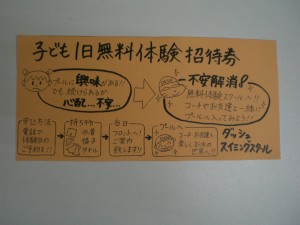 子ども1日無料体験招待券
プールに興味がある!!
でも、続けられるか
心配…不安…
不安解消!
無料体験スクールへ!!
コーチやお友達と一緒に
プールへ入ってみよう!!
申込方法
電話で
体験日の
ご予約を!!
持ち物
水着
帽子
タオル
当日
フロントへ!
ご案内
致します!!
プールへ
コーチ、お友達と
楽しく
ダッシュ
スイミングスクール